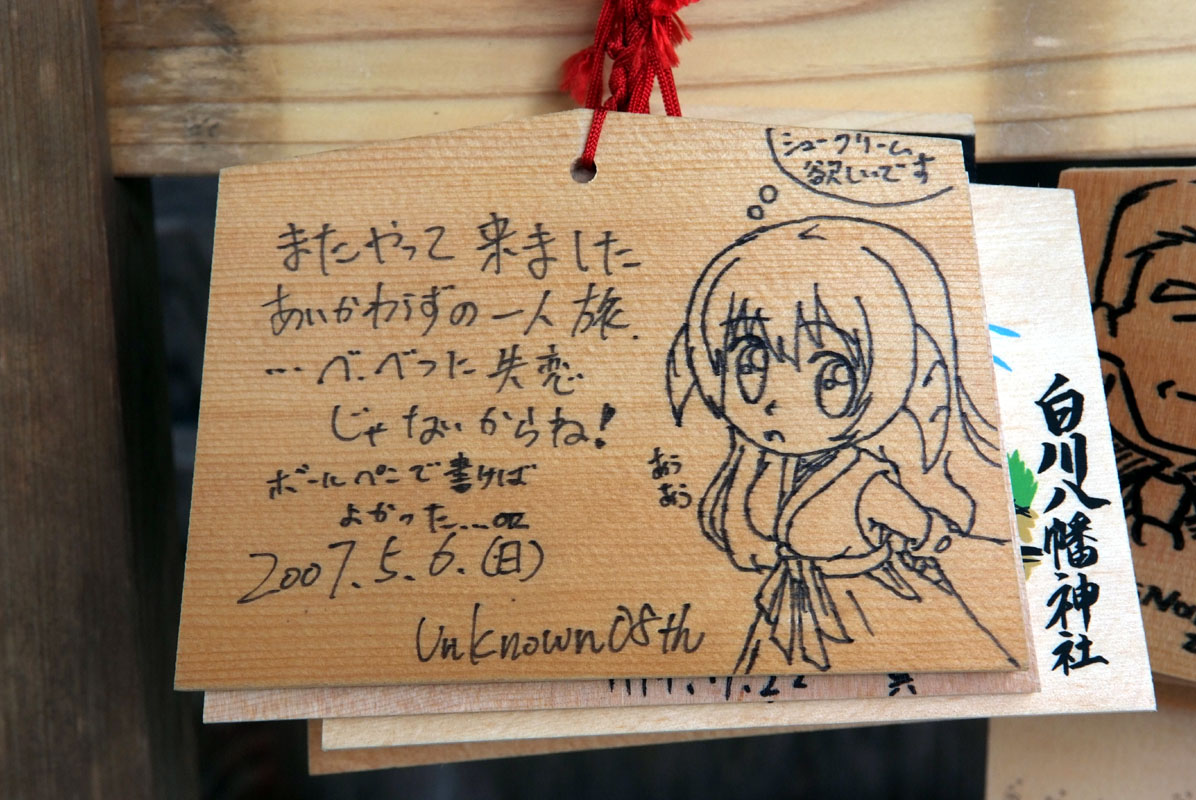 またやって来ました
あいかわらずの一人旅.
…べ.べつに失恋
じゃないからね!
ボールペンで書けば
よかった...orz
2007.5.6.(日)
Unknown08th
シュークリーム
欲しいです
あぅ
あぅ
白川八幡神社